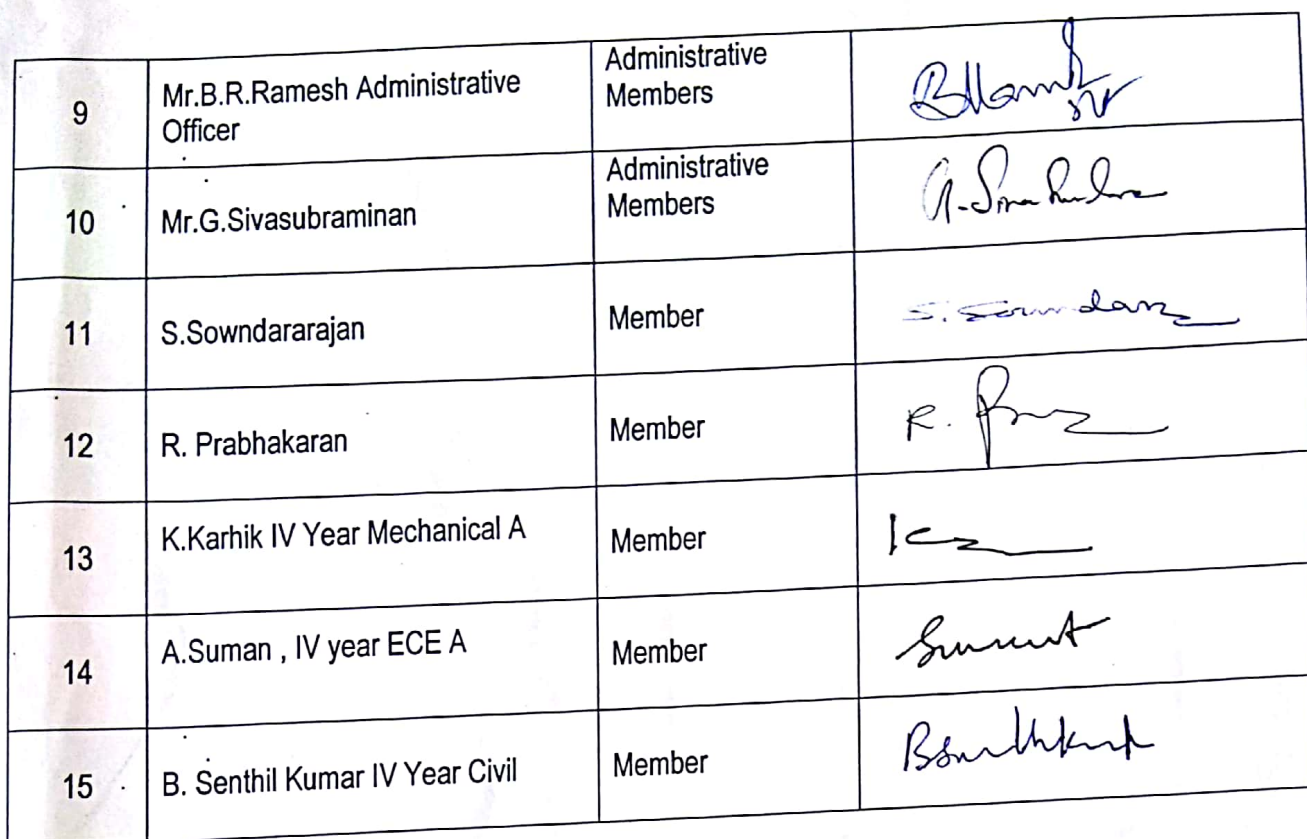 9 Mr.B.R.Ramesh Administrative Officer Administrative Members
10 Mr.G.Sivasubraminan Administrative Members
11 S.Sowndararajan Member S. Sowndar
12 R. Prabhakaran Member R.
13 K.Karhik IV Year Mechanical A Member
14 A.Suman , IV year ECE A Member
15 B. Senthil Kumar IV Year Civil Member